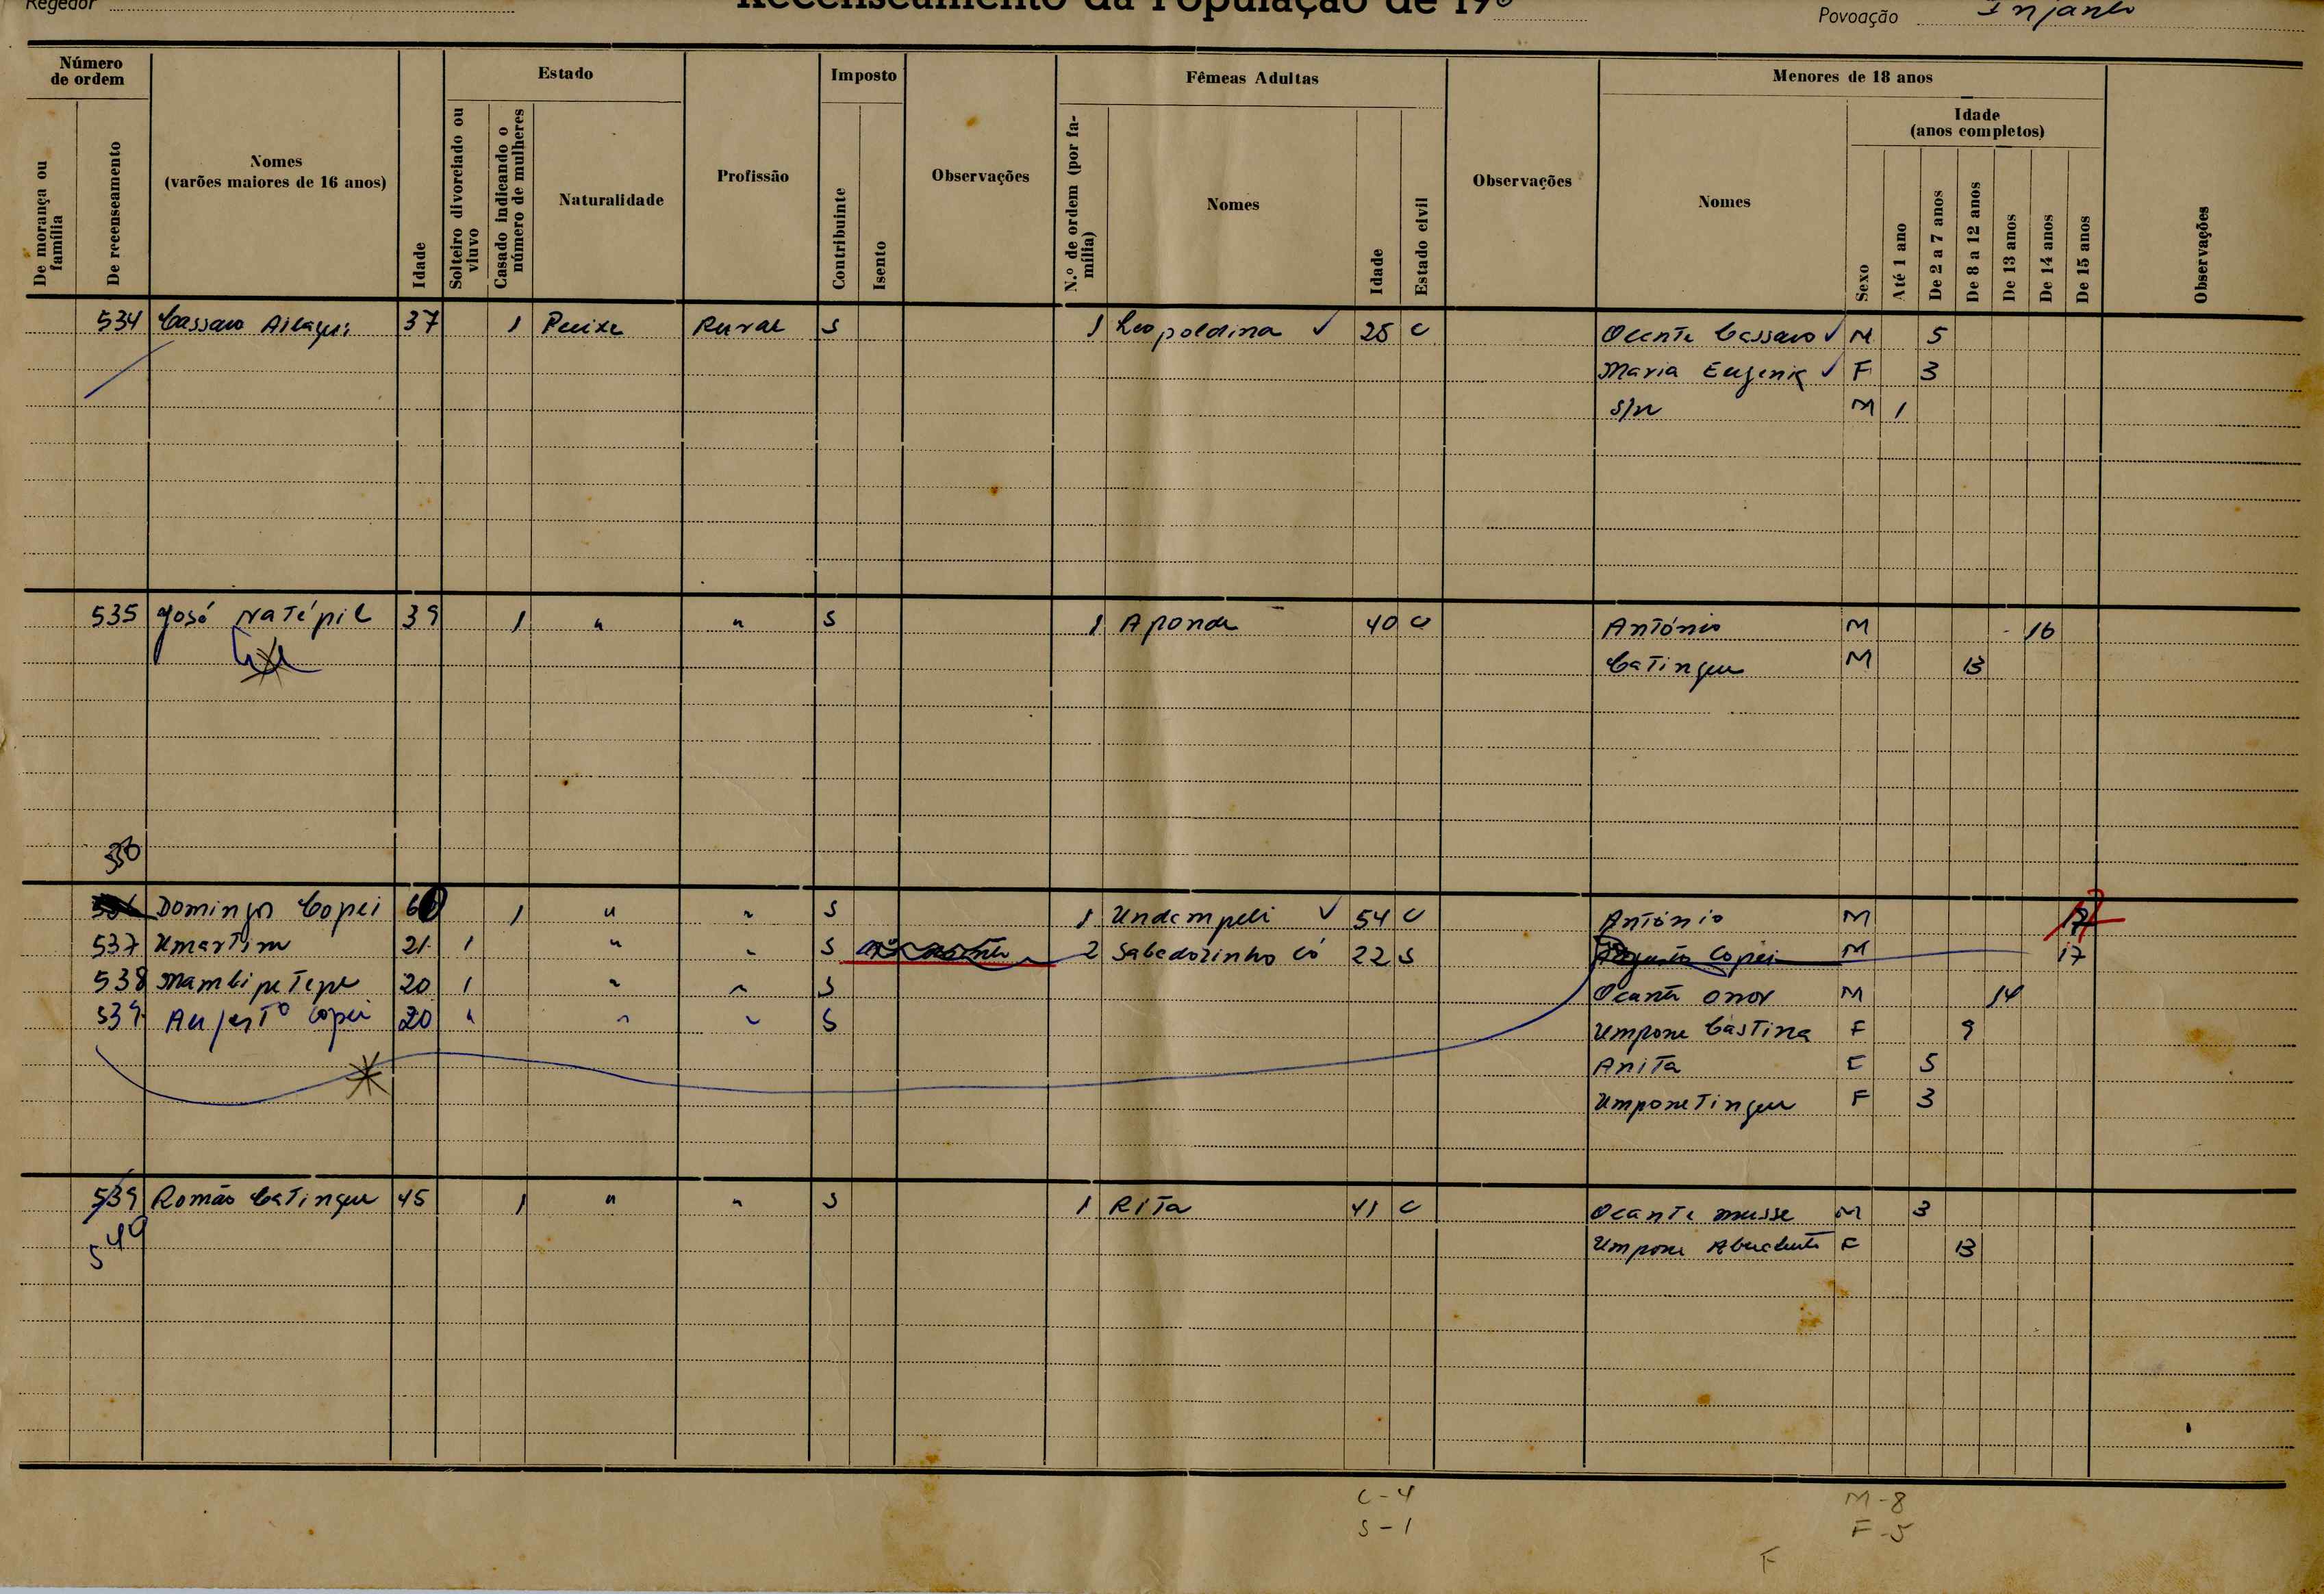 Regedor
Recenseamento da População de 19
Povoação Injante
Número de ordem
De morança ou família
De recenseamento
Nomes (varões maiores de 16 anos)
Idade
Estado
Solteiro divorciado ou viuvo
Casado indicando o número de mulheres
Naturalidade
Profissão
Imposto
Contribuinte
Isento
Observações
Fêmeas Adultas
N.º de ordem (por família)
Nomes
Idade
Estado civil
Observações
Menores de 18 anos
Nomes
Sexo
Idade (anos completos)
Até 1 ano
De 2 a 7 anos
De 8 a 12 anos
De 13 anos
De 14 anos
De 15 anos
Observações
534 Cassaro 37 1 Peixe Rural S 1 Leopoldina ✓ C Ocante Cassaro ✓ M 5
Maria Eugenia ✓ F 3
S/n M 1
535 José Natépil 39 1 " " S 1 Aponda 40 C António M 16
Catingue M 13
536
Domingos Copei 1 " " S 1 Undempeli ✓ 54 C António M 17
537 Umartim 21 1 " " S 2 Sabedozinho Có 22 S Augusto Copei M 17
538 Mambipetepe 20 1 " " S Ocante Onor M 14
539 Augusto Copei 20 " " " S Umpone Castina F 9
Anita F 5
Umpone Tingue F 3
539 Romão Catingue 45 1 " " S 1 Rita 41 C Ocante musse M 3
540 Umpone F 13
C - 4
S - 1
M - 8
F - 5
F